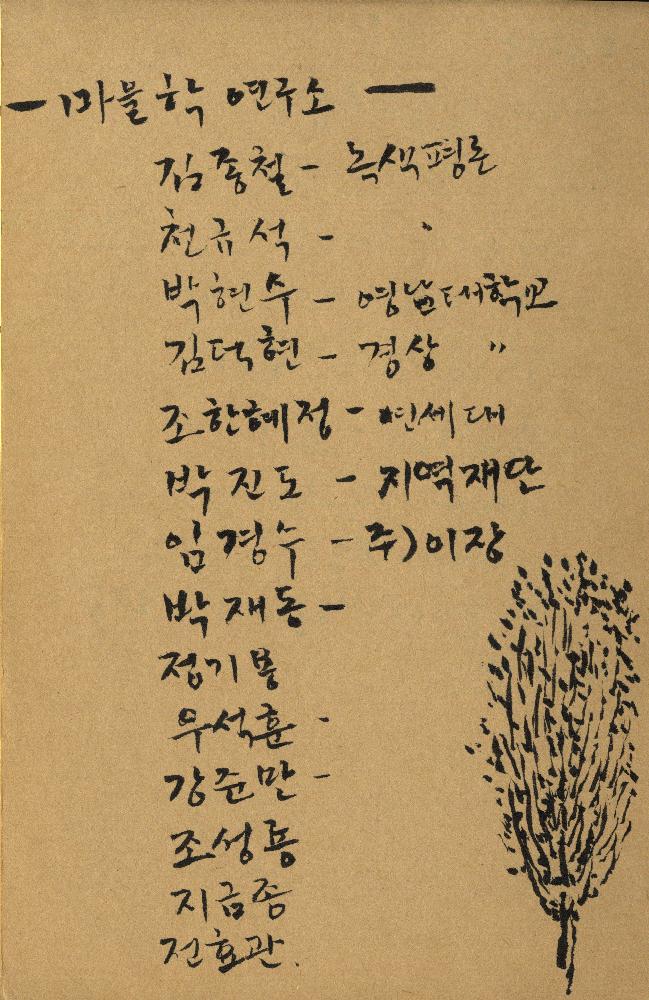 — 마을학 연구소 —
김종철 - 녹색평론
천규석 - 〃
박현수 - 영남대학교
김덕현 - 경상 〃
조한혜정 - 연세대
박진도 - 지역재단
임경수 - 주)이장
박재동 -
정기용
우석훈 -
강준만 -
조성룡
지금종
전효관.